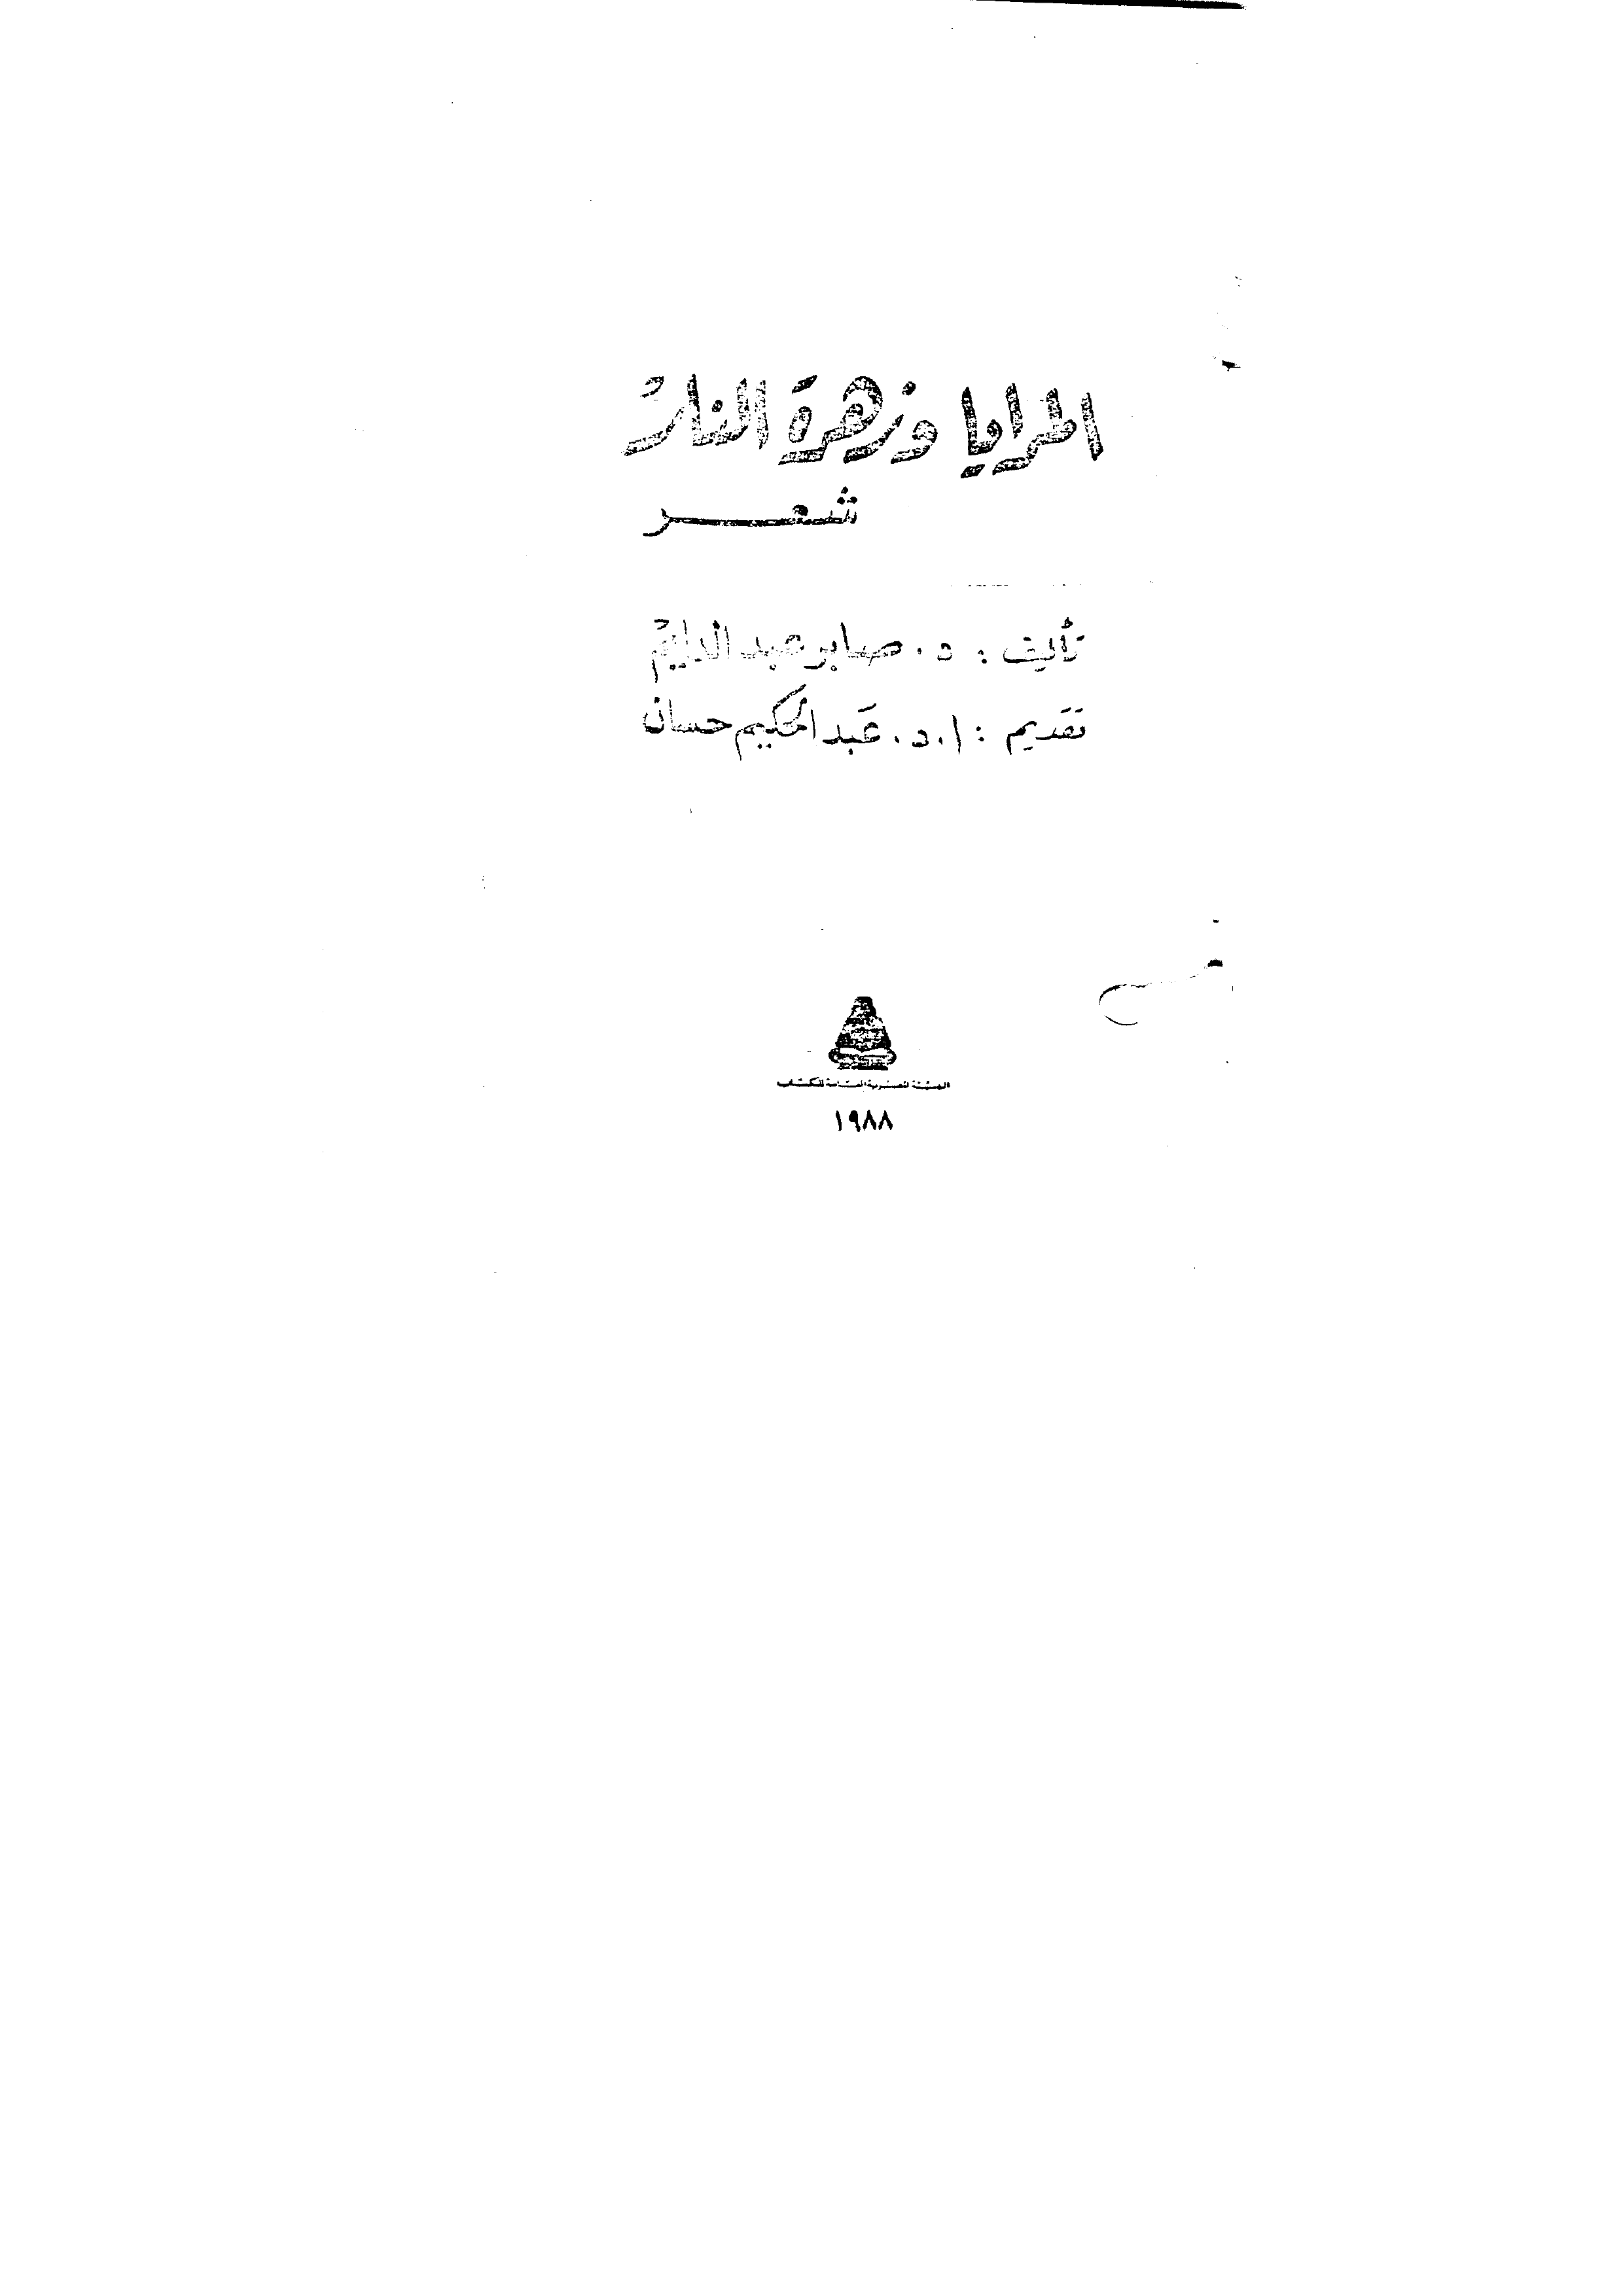 المرايا وزهرة النار
شعر
تأليف : د . صابر عبد الدايم
تقديم : ا . د . عبد الحكيم حسان
الهيئة المصرية العامة للكتاب
١٩٨٨